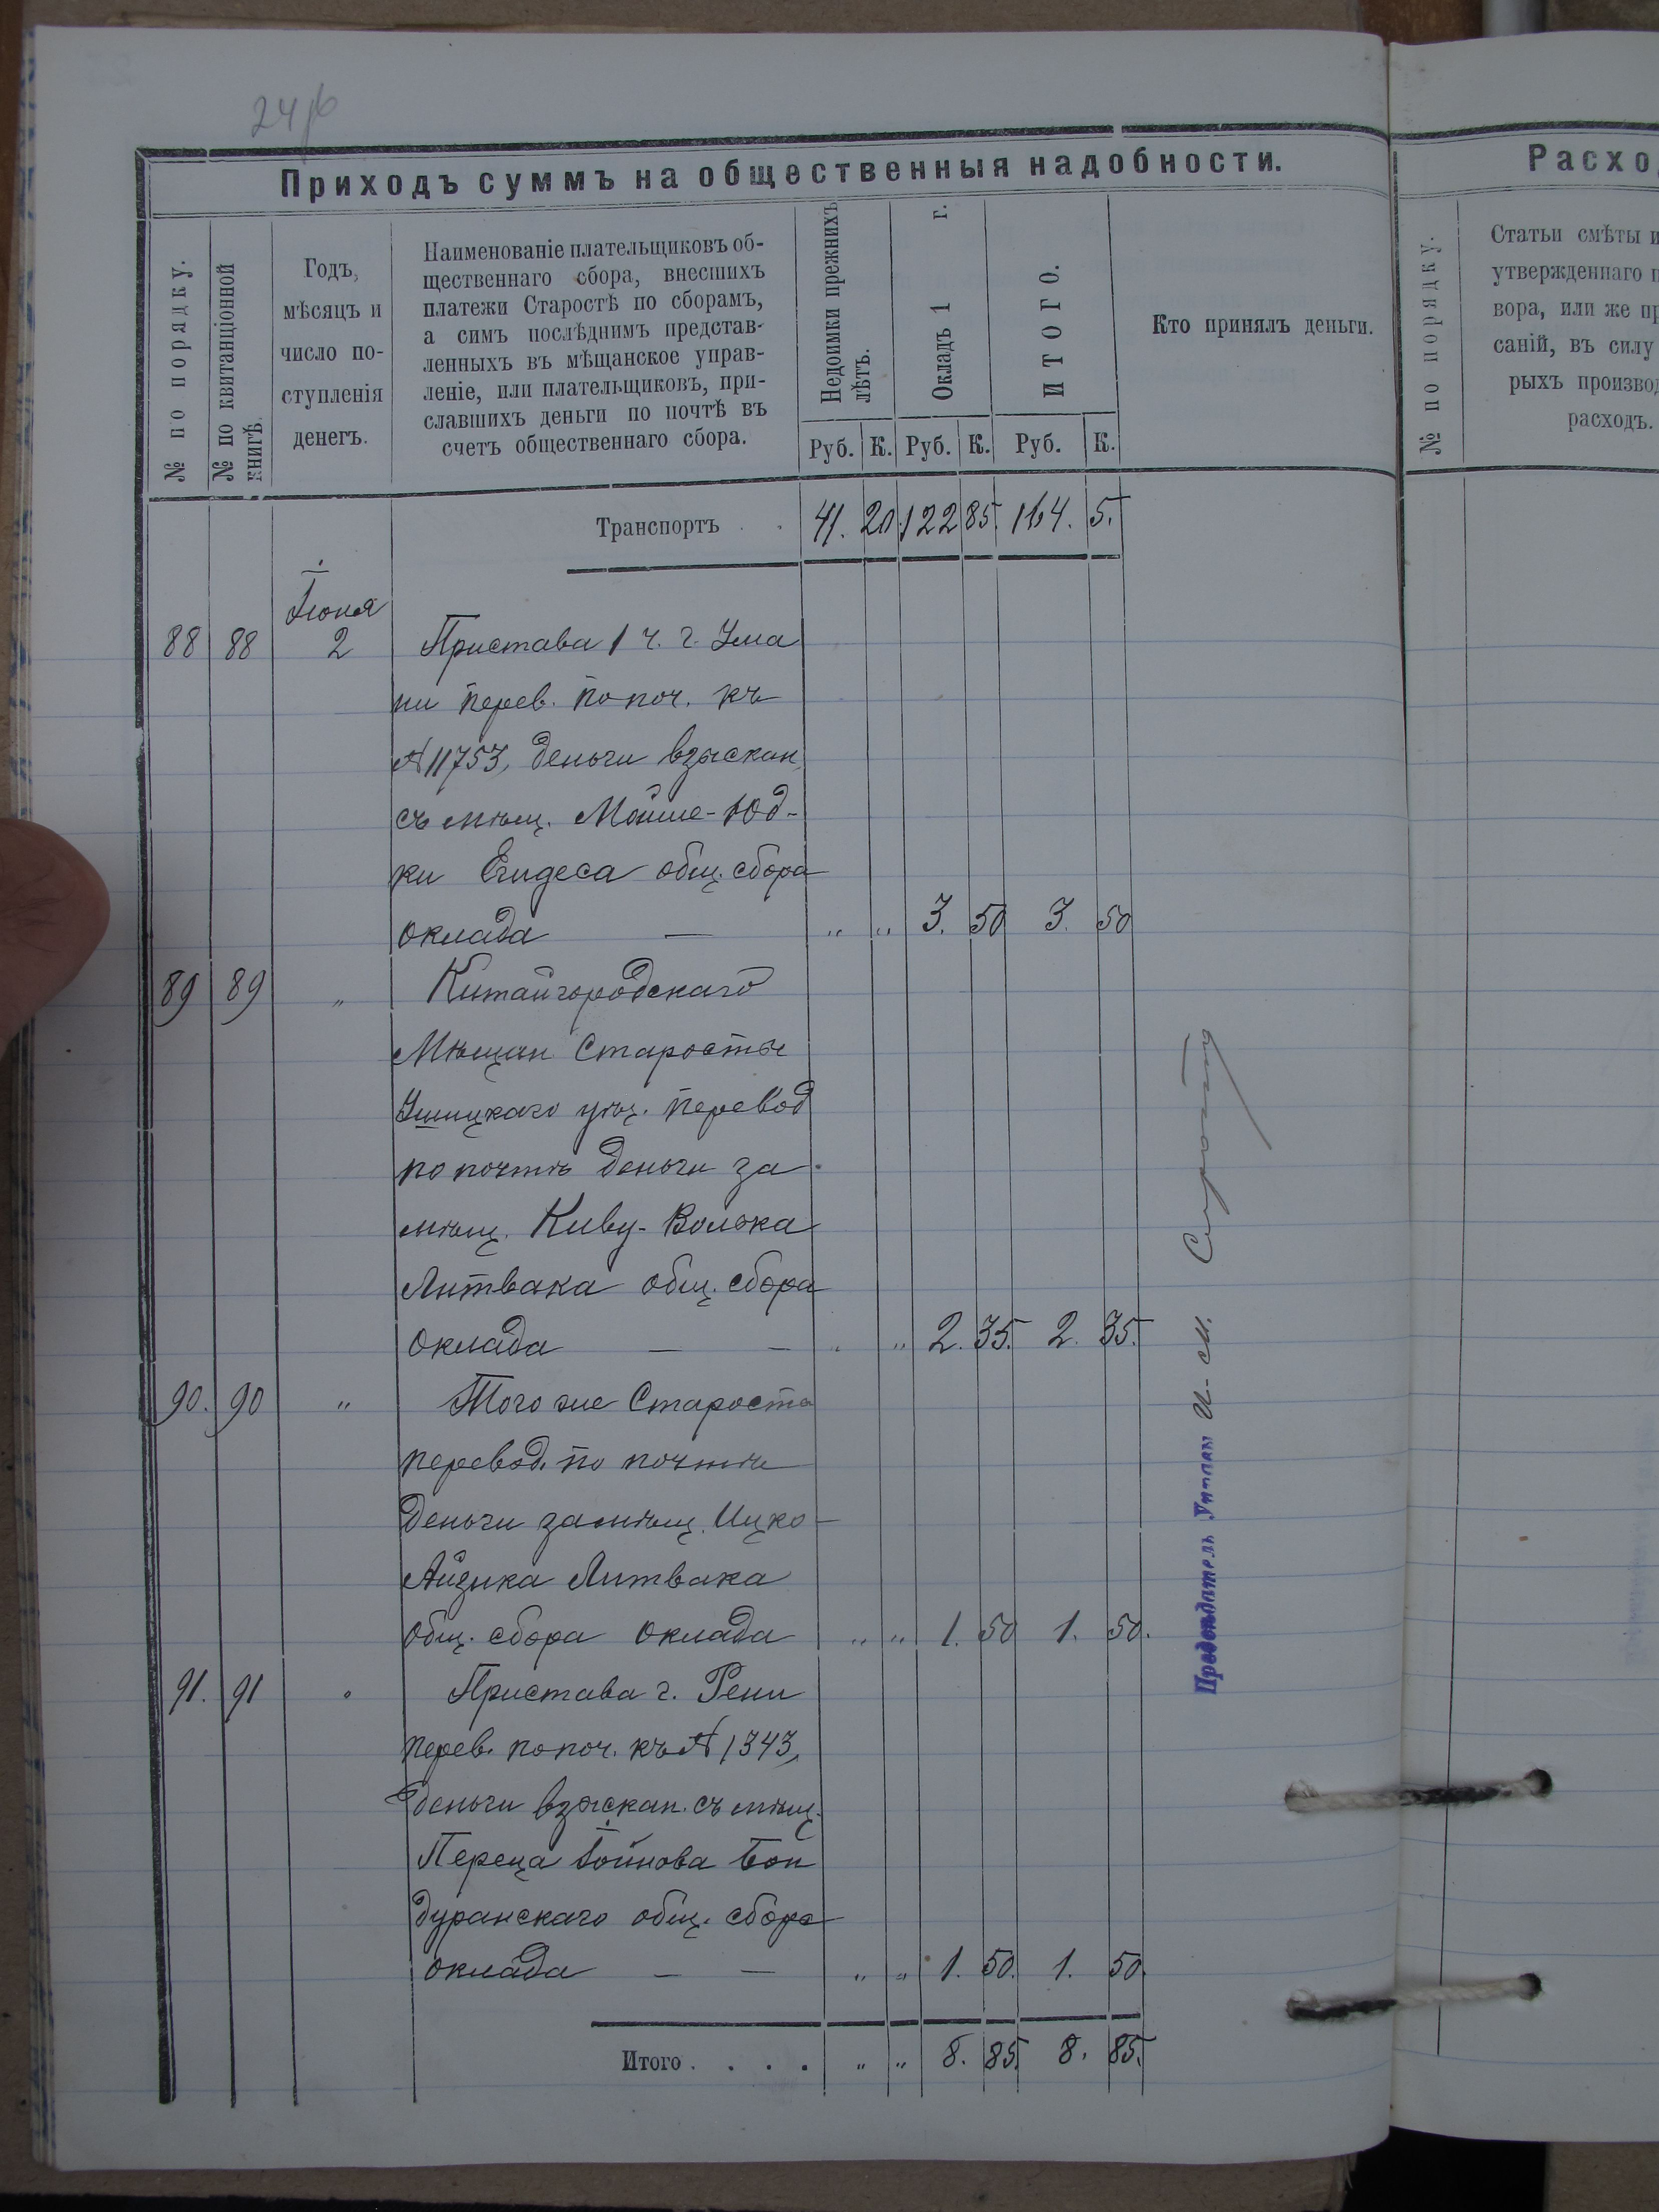 24 об
Приходъ суммъ на общественныя надобности.
№ по порядку.
№ по квитанціонной книгѣ.
Годъ,
мѣсяцъ и
число по-
ступленія
денегъ.
Наименованіе плательщиковъ об-
щественнаго сбора, внесшихъ
платежи Старостѣ по сборамъ,
а симъ послѣднимъ представ-
ленныхъ въ мѣщанское управ-
леніе, или плательщиковъ, при-
славшихъ деньги по почтѣ въ
счетъ общественнаго сбора.
Недоимки прежнихъ лѣтъ.
Окладъ 1 г.
ИТОГО.
Кто принялъ деньги.
Руб. К. Руб. К. Руб. К.
Транспортъ . . 41. 20. 122 85. 164. 5.
Іюня
88 88 2 Пристава 1 ч. г. Ума
ни перев. по поч. къ
№ 11753, деньги взыскан.
съ мѣщ. Мойше-Юд-
ки общ. сбора
оклада — " " 3. 50 3. 50
89 89 " Китайгородскаго
Мѣщан Старосты
Ушицкаго уѣз. перевод
по почтѣ деньги за
мѣщ. Киву-Волька
Литвака общ. сбора
оклада — — " " 2. 35. 2. 35.
90. 90 " Того же Староста
перевод. по почтѣ
деньги за мѣщ. Ицко-
Айзика Литвака
общ. сбора оклада " " 1. 50 1. 50.
91. 91 " Пристава г. Рени
перев. по поч. къ № 1343,
деньги взыскан. съ мѣщ.
Переца Іойнова Бон
дуранскаго общ. сбора
оклада — — " " 1. 50. 1. 50.
Итого . . . . " " 8. 85. 8. 85.
Предсѣдатель И. М.
Расхо
№ по порядку.
Статьи смѣты и
утвержденнаго п
вора, или же пр
саній, въ силу
рыхъ произвед
расходъ.